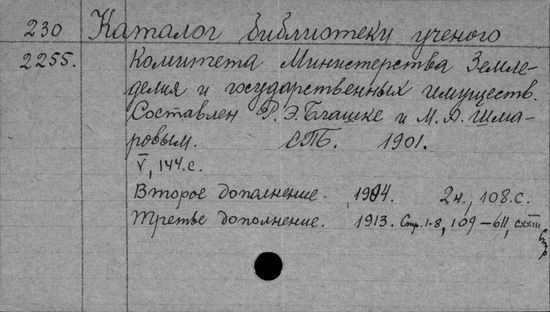 230 Каталог библиотеки ученого
2255. Комитета Министерства Земле-
делия и государственных имуществ.
Составлен Р. Э. Блашке и М. А. Шма-
ровым. СПб. 1901.
V, 144 с.
Второе дополнение. 1904. 2 н., 108 с.
Третье дополнение. 1913. Стр. 1-8, 109-611, CXXIII
стр